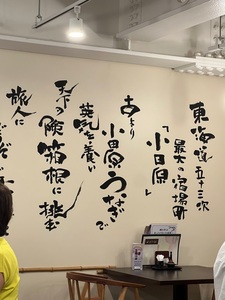 東海道五十三次
最大の宿場町
「小田原」
あり
小田原うなぎで
英気を養い
天下の険箱根に挑む
旅人に